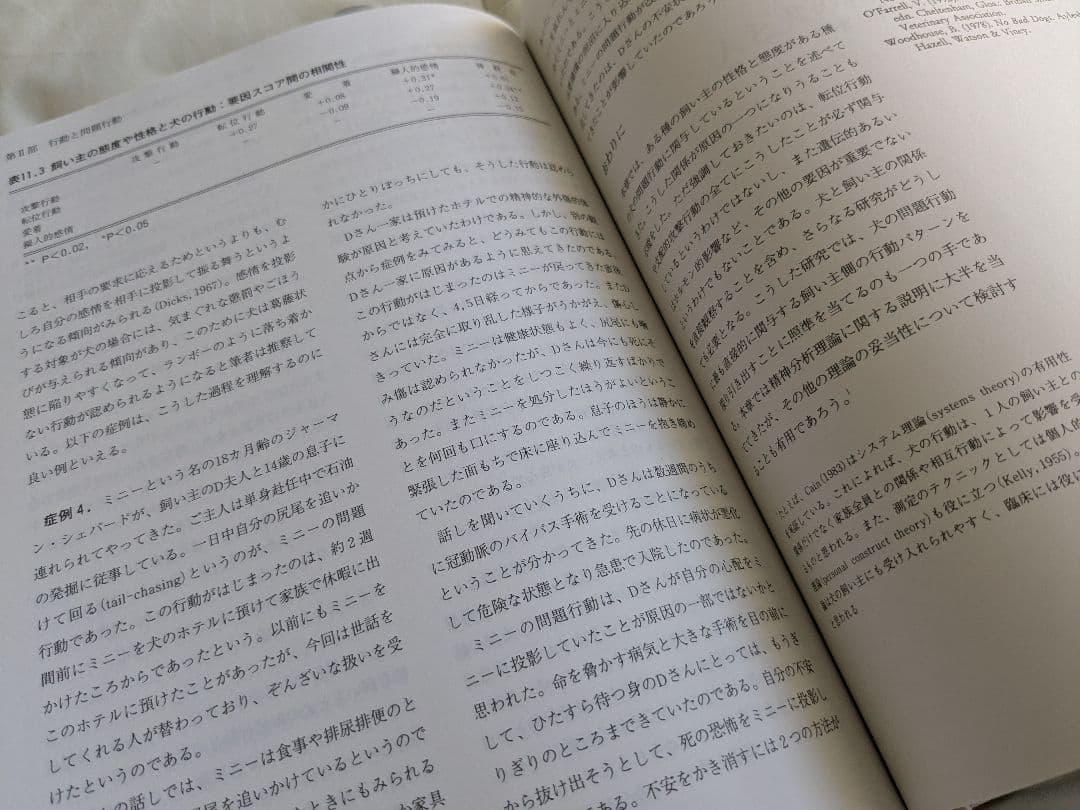 第Ⅱ部 行動と問題行動
表11.3 飼い主の態度や性格と犬の行動：要因スコア間の相関性
攻撃行動 転位行動 愛着 擬人的感情
攻撃行動 － +0.27 +0.08 +0.31*
転位行動 － -0.09 +0.27
愛着 － -0.19
擬人的感情
** P<0.02, *P<0.05
こると、相手の要求に応えるためというよりも、む
しろ自分の感情を相手に投影して振る舞うというよ
うになる傾向がみられる(Dicks, 1967)。感情を投影
する対象が犬の場合には、気まぐれな懲罰やごほう
びが与えられる傾向があり、このために犬は葛藤状
態に陥りやすくなって、ランボーのように落ち着か
ない行動が認められるようになると筆者は推察して
いる。以下の症例は、こうした過程を理解するのに
良い例といえる。
症例4. ミニーという名の18カ月齢のジャーマ
ン・シェパードが、飼い主のD夫人と14歳の息子に
連れられてやってきた。ご主人は単身赴任中で石油
の発掘に従事している。一日中自分の尻尾を追いか
けて回る(tail-chasing)というのが、ミニーの問題
行動であった。この行動がはじまったのは、約2週
間前にミニーを犬のホテルに預けて家族で休暇に出
かけたころからであったという。以前にもミニーを
このホテルに預けたことがあったが、今回は世話を
してくれる人が替わっており、ぞんざいな扱いを受
けたというのである。
の話しでは、ミニーは食事や排尿排便のと
尾を追いかけているというので
ときにもみられる
か家具
かにひとりぼっちにしても、そうした行動は認めら
れなかった。
Dさん一家は預けたホテルでの精神的な外傷的体
験が原因と考えていたわけである。しかし、別の観
点から症例をみてみると、どうみてもこの行動には
Dさん一家に原因があるように思えてきたのである。
この行動がはじまったのはミニーが戻ってきた直後
からではなく、4,5日経ってからであった。またD
さんには完全に取り乱した様子がうかがえ、傷心し
きっていた。ミニーは健康状態もよく、尻尾にも噛
み傷は認められなかったが、Dさんは今にも死にそ
うなのだということをしつこく繰り返すばかりで
あった。またミニーを処分したほうがよいというこ
とを何回も口にするのである。息子のほうは静かに
緊張した面もちで床に座り込んでミニーを抱き締め
ていたのである。
話しを聞いていくうちに、Dさんは数週間のうち
に冠動脈のバイパス手術を受けることになっている
ということが分かってきた。先の休日に病状が悪化
して危険な状態となり急患で入院したのであった。
ミニーの問題行動は、Dさんが自分の心配をミ
ニーに投影していたことが原因の一部ではないかと
思われた。命を脅かす病気と大きな手術を目の前に
して、ひたすら待つ身のDさんにとっては、もうぎ
りぎりのところまできていたのである。自分の不安
から抜け出そうとして、死の恐怖をミニーに投影し
ある。不安をかき消すには2つの方法が
O'Farrell, V.
edn. Cheltenham, Glos.: British Small
Veterinary Association.
Woodhouse, B. (1978), No Bad Dogs. Aylesb
Hazell, Watson & Viney.
おわりに
本章では、ある種の飼い主の性格と態度がある種
の犬の問題行動に関与しているということを述べて
きた。こうした関係が原因の一つになりうることも
ただ強調しておきたいのは、転位行動
攻撃行動の全てにこうしたことが必ず関与
しているというわけではないし、また遺伝的あるい
はホルモン的影響など、その他の要因が重要でない
というわけでもないことである。犬と飼い主の関係
を直接観察することを含め、さらなる研究がどうし
ても必要となる。こうした研究では、犬の問題行動
に最も直接的に関与する飼い主側の行動パターンを
引き出すことに照準を当てるのも一つの手であ
る。本章では精神分析理論に関する説明に大半を当
ててきたが、その他の理論の妥当性について検討す
ることも有用であろう。¹
たとえば、Cain(1983)はシステム理論(systems theory)の有用性
している。これによれば、犬の行動は、1人の飼い主との
だけでなく家族全員との関係や相互行動によって影響を受
ものと思われる。また、測定のテクニックとしては個人的
(personal construct theory)も役に立つ(Kelly, 1955)。
の飼い主にも受け入れられやすく、臨床には役に
と思われる